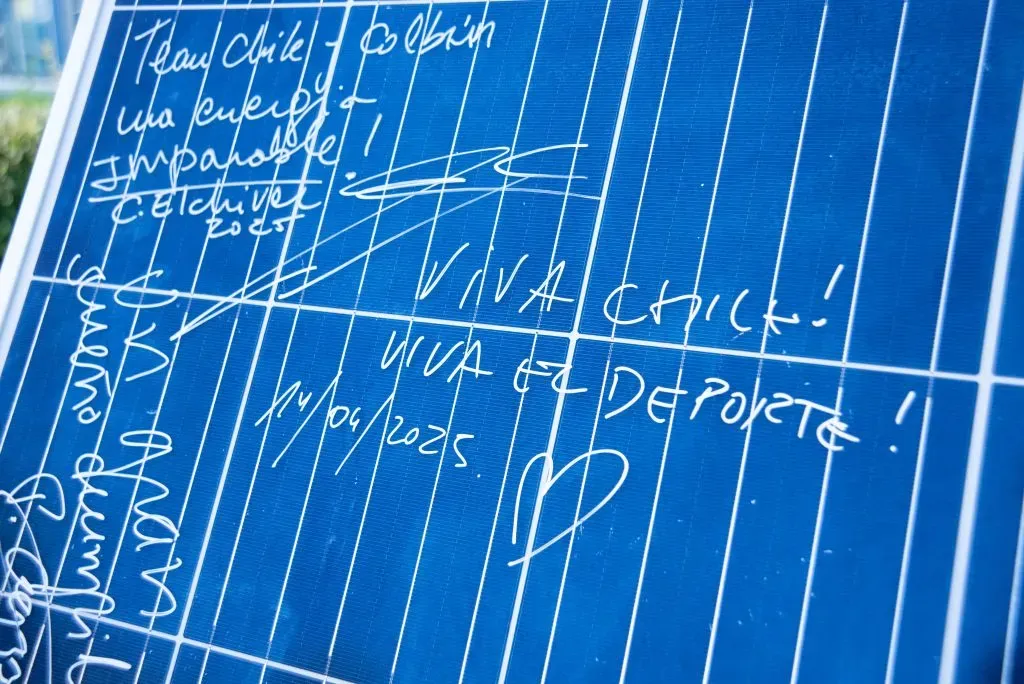 Team Chile - Colbún
una energía
imparable!
2025
VIVA CHILE!
VIVA EL DEPORTE!
14/04/2025.
Un gran
sueño cumplido